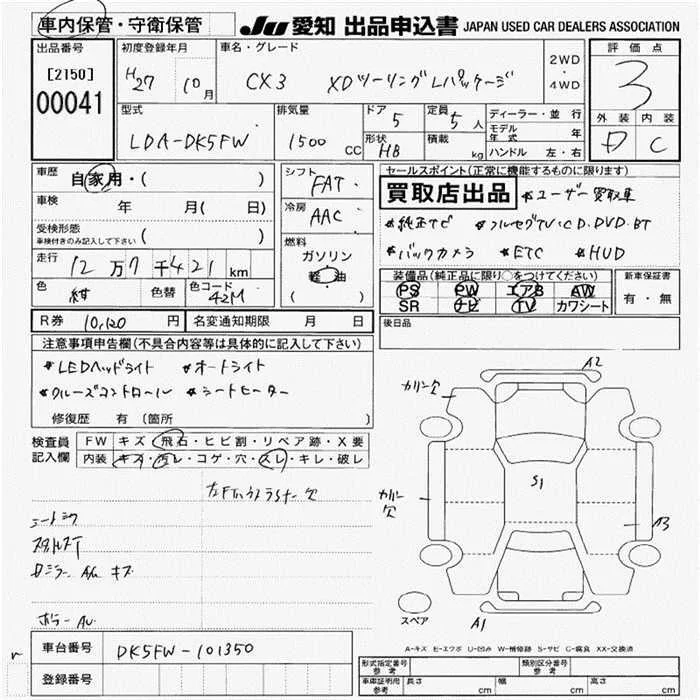 車内保管・守衛保管
JU 愛知 出品申込書 JAPAN USED CAR DEALERS ASSOCIATION
出品番号 初度登録年月 車名・グレード 2WD・4WD 評価点
[2150] H27 10月 CX3 XDツーリングLパッケージ 3
00041
型式 排気量 ドア 5 定員 5人 ディーラー・並行 外装 内装
LDA-DK5FW 1500cc 形状 HB 積載 kg モデル年式 年 D C
ハンドル 左・右
車歴 自家用・( ) シフト FAT セールスポイント(正常に機能するものに限ります)
車検 年 月( 日) 冷房 AAC 買取店出品 *ユーザー買取車
受検形態 車検付きのみ記入して下さい ( ) *純正TC *フルセグTV・CD・DVD・BT
燃料 ガソリン 軽油 ( ) *バックカメラ *ETC *HUD
走行 12万7千421km
色 紺 色替 色コード 42M
装備品(純正品に限り○をつけてください) 新車保証書
PS PW エアB AW 有・無
SR ナビ TV カワシート
R券 10,120円 名変通知期限 月 日 後日品
注意事項申告欄(不具合内容等は具体的に記入して下さい)
*LEDヘッドライト *オートライト
*クルーズコントロール *シートヒーター
修復歴 有 (箇所 )
検査員記入欄 FW キズ・飛石・ヒビ割・リペア跡・X要
内装 キズ・汚レ・コゲ・穴・スレ・キレ・破レ
A2
カリン欠
S1
カリン欠
A3
A1
スペア
シートシワ
キズ
A-キズ E-エクボ U-凹み W-補修跡 S-サビ C-腐食 XX-交換済
車台番号 DK5FW-101350
登録番号
形式指定番号 参考 類別区分番号 参考
車庫証明用 参考 長さ cm 幅 cm 高さ cm